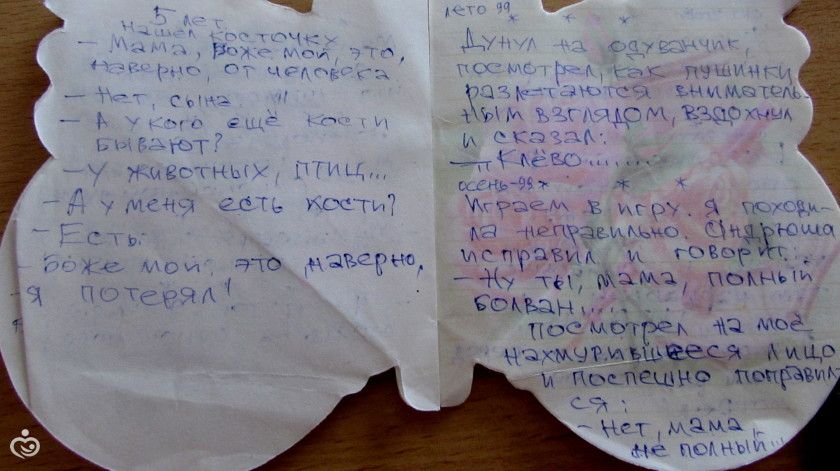 5 лет.
нашёл косточку
- Мама, Боже мой, это,
наверно, от человека
- Нет, сына.
- А у кого ещё кости
бывают?
- У животных, птиц...
- А у меня есть кости?
- Есть.
- Боже мой, это, наверно,
я потерял!
лето 99 * * *
Дунул на одуванчик,
посмотрел, как пушинки
разлетаются вниматель-
ным взглядом, вздохнул
и сказал:
- Клёво.......
осень-99 * * *
Играем в игру. Я походи-
ла неправильно. Андрюша
исправил и говорит:
- Ну ты, мама, полный
болван.....
Посмотрел на моё
нахмурившееся лицо
и поспешно поправил-
ся:
- Нет, мама,
не полный...